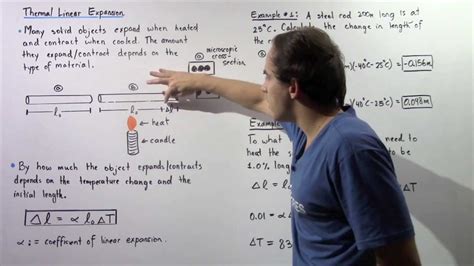 Thermal Linear Expansion
• Many solid objects expand when heated
and contract when cooled. The amount
they expand/contract depends on the
type of material.
microscopic
cross-
section
a
b
l₀
l₀
Δl
heat
candle
• By how much the object expands/contracts
depends on the temperature change and the
initial length.
Δl = α l₀ ΔT
α := coefficient of linear expansion.
Example #1: A steel rod 200m long is at
25°C. Calculate the change in length of
the
(-40°C-25°C) = -0.156m
°C-25°C) = 0.098m
Example
What
to
heat the
to be
1.0% long
Δl = α l₀
0.01 = α
ΔT = 83